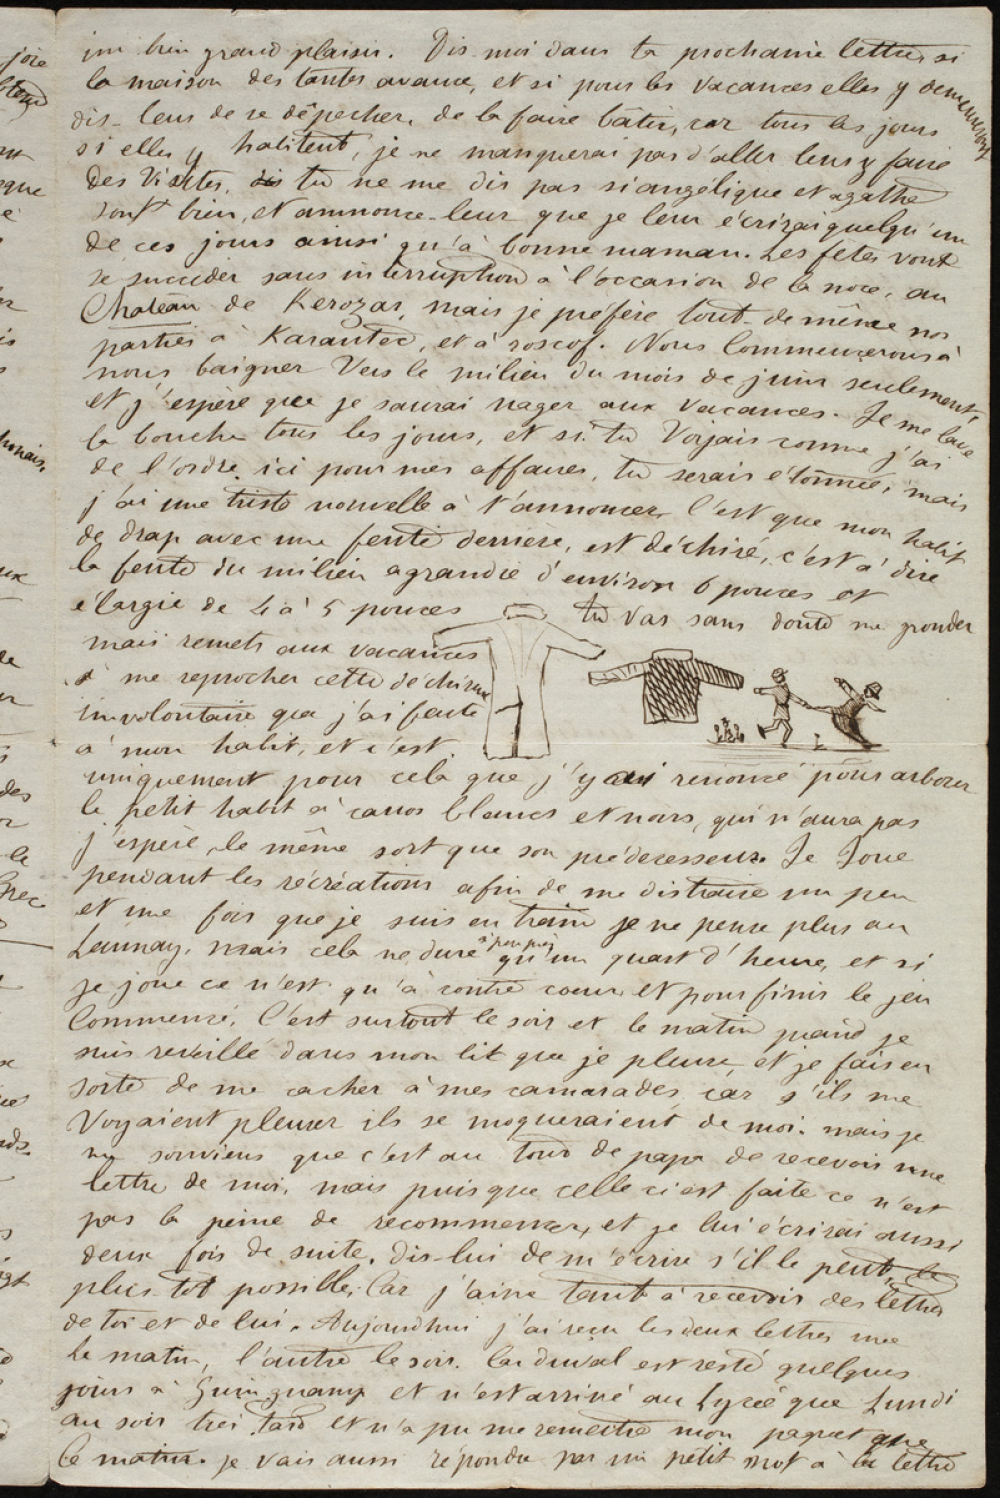 un bien grand plaisir. Dis moi dans ta prochaine lettre si
la maison des tantes avance, et si pour les vacances elles y demeureront
dis-leur de se dépecher, de la faire bâtir, car tous les jours
si elles y habitent, je ne manquerai pas d'aller leur y faire
des visites. tu ne me dis pas si angélique et agathe
sont bien, et annonce-leur que je leur écrirai quelqu'un
de ces jours ainsi qu'à bonne maman. Les fêtes vont
se succéder sans interruption à l'occasion de la noce, au
Chateau de Kerozar, mais je préfère tout-de même nos
parties à Karantec, et à roscof. Nous Commencerons à
nous baigner Vers le milieu du mois de juin seulement,
et j'espère que je saurai nager aux vacances. Je me lave
la bouche tous les jours, et si tu Voyais comme j'ai
de l'ordre ici pour mes affaires, tu serais étonnée, mais
j'ai une triste nouvelle à t'annoncer, C'est que mon habit
de drap avec une fente derrière, est déchiré, c'est à dire
la fente du milieu agrandie d'environ 6 pouces et
élargie de 4 à 5 pouces tu vas sans doute me gronder
mais remets aux vacances
à me reprocher cette déchirure
involontaire que j'ai faite
à mon habit, et c'est
uniquement pour cela que j'y ai renoncé pour arborer
le petit habit à carros blancs et noirs, qui n'aura pas
j'espère, le même sort que son prédecesseur. Je Joue
pendant les récréations afin de me distraire un peu
et une fois que je suis en train je ne pense plus au
Launay, mais cela ne dure à peu près qu'un quart d'heure, et si
je joue ce n'est qu'à contre coeur, et pour finir le jeu
Commencé. C'est surtout le soir et le matin quand je
suis reveillé dans mon lit que je pleure, et je fais en
sorte de me cacher à mes camarades car s'ils me
Voyaient pleurer ils se moqueraient de moi. mais je
me souviens que c'est au tour de papa de recevoir une
lettre de moi, mais puisque celle ci est faite ce n'est
pas la peine de recommencer, et je lui écrirai aussi
deux fois de suite. Dis-lui de m'écrire s'il le peut, le
plus tot possible, Car j'aime tant à recevoir des lettres
de toi et de lui. Aujourdhui j'ai reçu les deux lettres une
le matin, l'autre le soir. Car duval est resté quelques
jours à Guinguamp et n'est arrivé au Lycée que Lundi
au soir très tard et n'a pu me remettre mon paquet que
le matin. je vais aussi répondre par un petit mot à la lettre